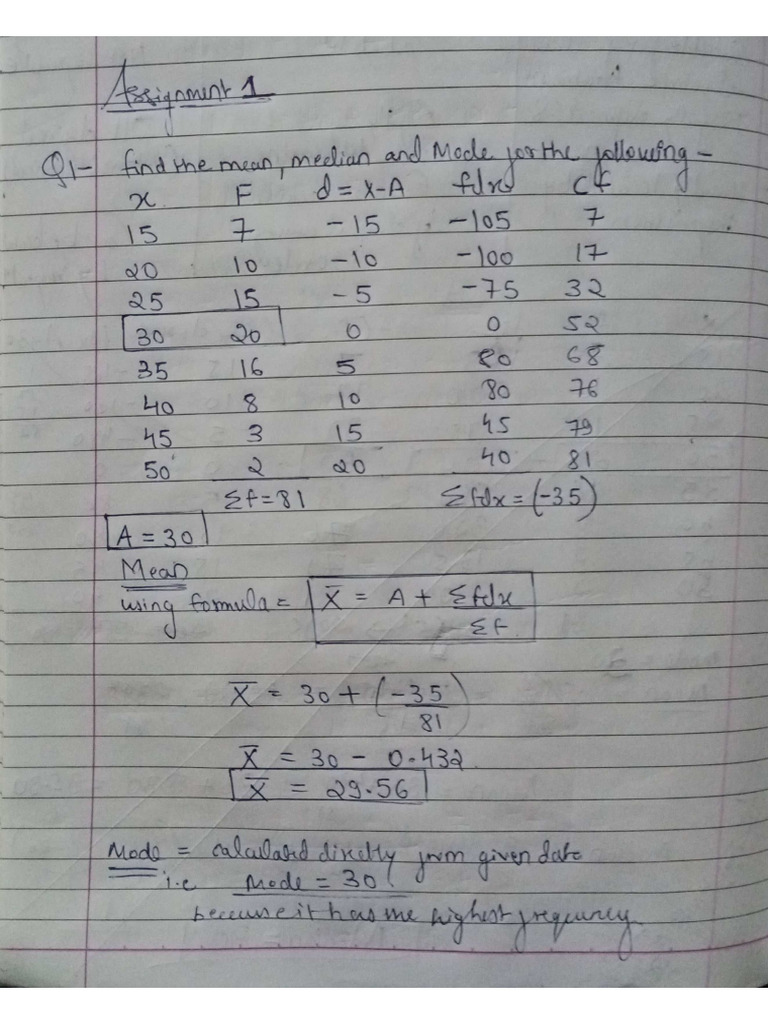 Assignment 1
Q1- find the mean, median and Mode for the following -
x F d = x-A fdx cf
15 7 -15 -105 7
20 10 -10 -100 17
25 15 -5 -75 32
30 20 0 0 52
35 16 5 80 68
40 8 10 80 76
45 3 15 45 79
50 2 20 40 81
Σf = 81 Σfdx = (-35)
A = 30
Mean
using formula = X̄ = A + Σfdx
Σf
X̄ = 30 + (-35
81)
X̄ = 30 - 0.432
X̄ = 29.56
Mode = calculated directly from given data
i.e Mode = 30
because it has the highest frequency